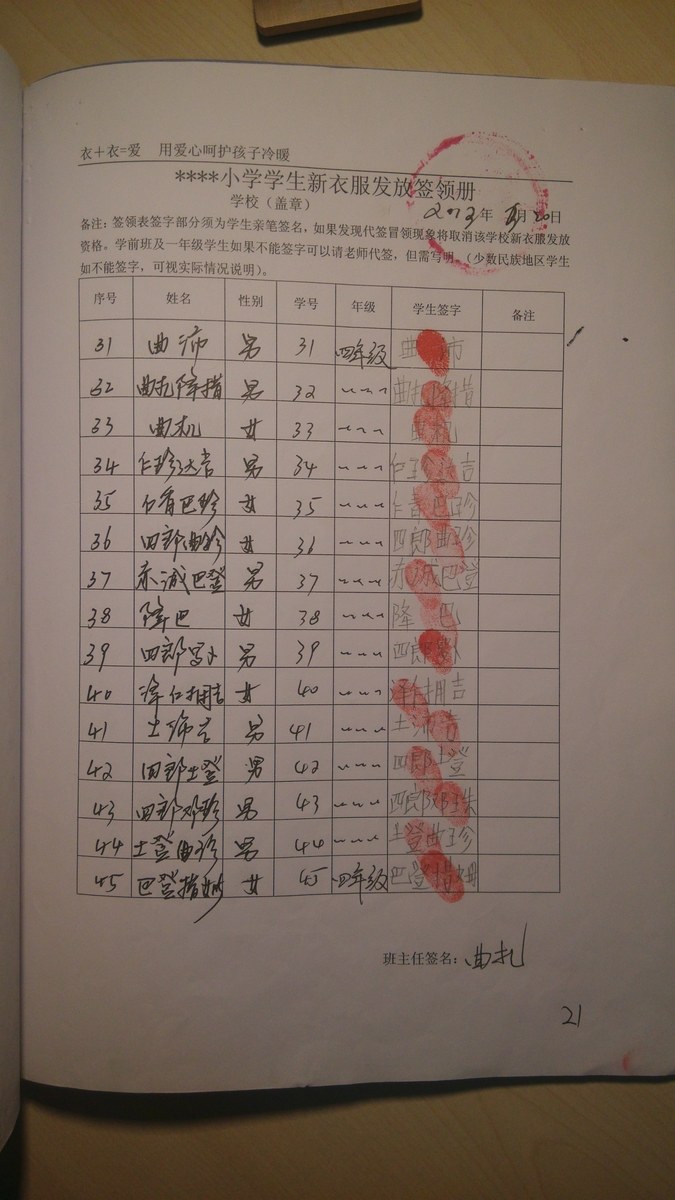 衣+衣=爱 用爱心呵护孩子冷暖
****小学学生新衣服发放签领册
学校（盖章） 2013年 月20日
备注：签领表签字部分须为学生亲笔签名，如果发现代签冒领现象将取消该学校新衣服发放
资格。学前班及一年级学生如果不能签字可以请老师代签，但需写明。（少数民族地区学生
如不能签字，可视实际情况说明）。
序号 姓名 性别 学号 年级 学生签字 备注
31 曲沛 男 31 四年级
32 曲扎降措 男 32 曲扎降措
33 曲机 女 33 曲机
34 仁珍达吉 男 34
35 巴珍 女 35 巴珍
36 四郎曲珍 女 36 四郎曲珍
37 赤诚巴登 男 37 赤诚巴登
38 降巴 女 38 降巴
39 四郎 男 39 四郎
40 泽仁拥吉 女 40 泽仁拥吉
41 土沛吉 男 41 土沛吉
42 四郎土登 男 42 四郎土登
43 四郎邓珍 男 43 四郎邓珠
44 土登曲珍 男 44 土登曲珍
45 巴登措姆 女 45 四年级 巴登措姆
班主任签名：曲扎
21